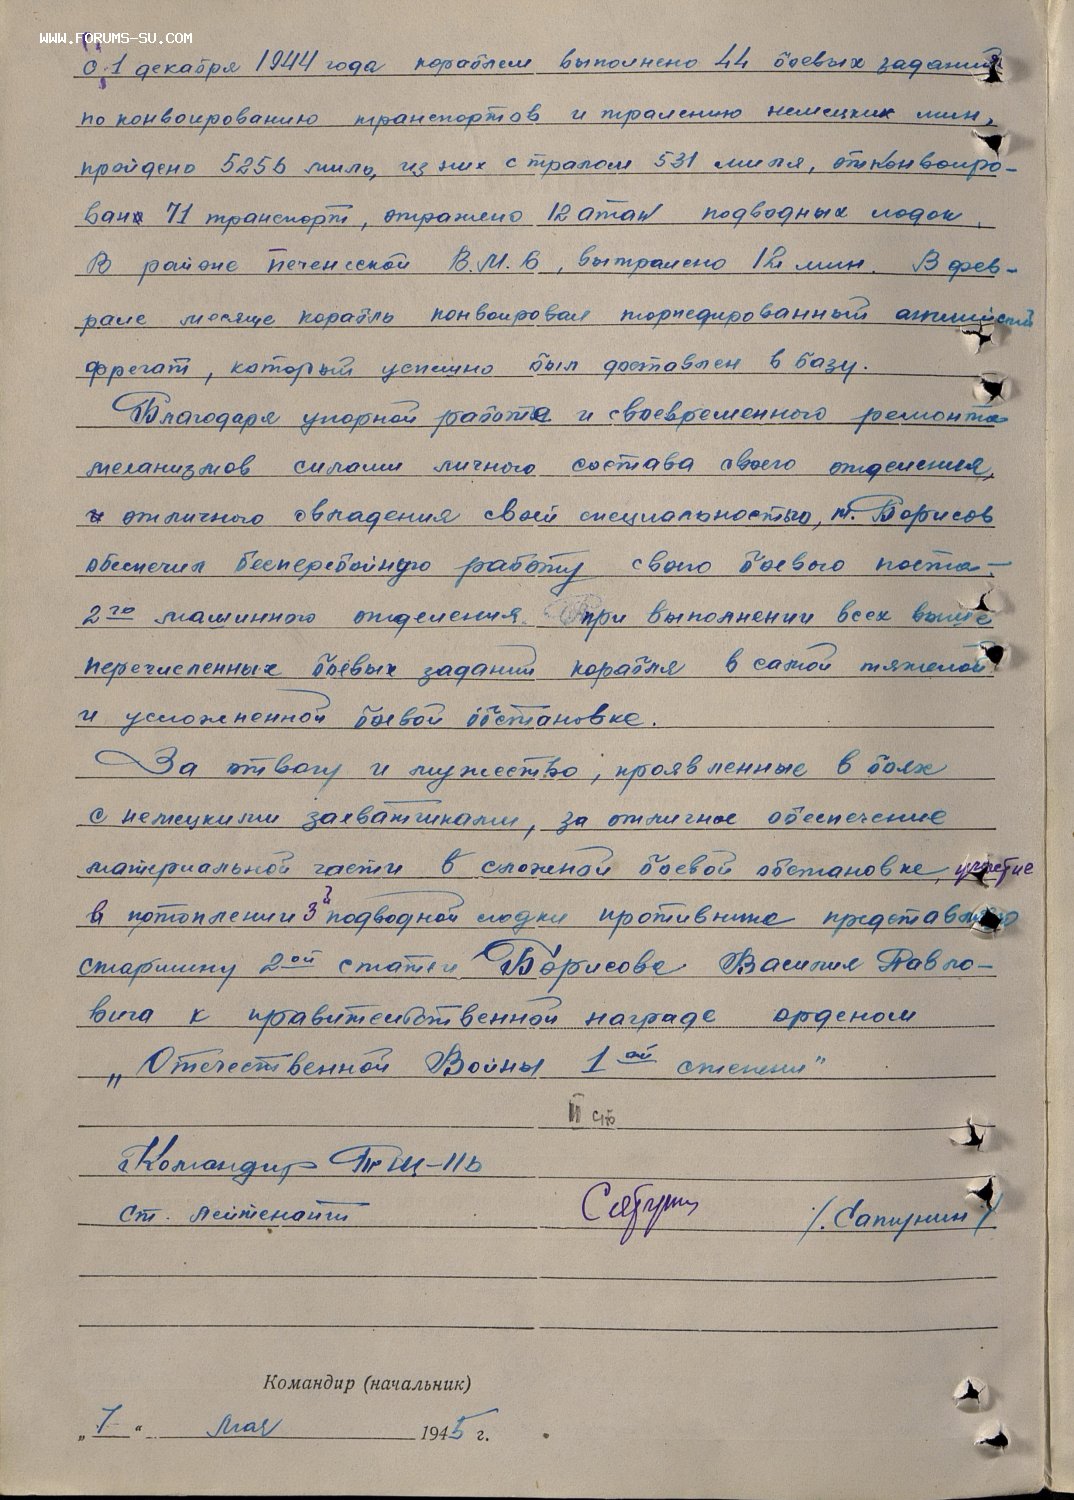 WWW.FORUMS-SU.COM
С 1 декабря 1944 года кораблем выполнено 44 боевых заданий
по конвоированию транспортов и тралению немецких мин,
пройдено 5256 миль, из них с тралом 531 миля, отконвоиро-
ван 71 транспорт, отражено 12 атак подводных лодок.
В районе Печенгской В.М.Б, вытралено 12 мин. В фев-
рале месяце корабль конвоировал торпедированный английский
фрегат, который успешно был доставлен в базу.
Благодаря упорной работе и своевременного ремонта
механизмов силами личного состава своего отделения,
и отличного овладения своей специальностью, т. Борисов
обеспечил бесперебойную работу своего боевого поста-
2го машинного отделения. При выполнении всех выше
перечисленных боевых заданий корабля в самой тяжелой
и усложненной боевой обстановке.
За отвагу и мужество, проявленные в боях
с немецкими захватчиками, за отличное обеспечение
материальной части в сложной боевой обстановке, участие
в потоплении 3й подводной лодки противника представляю
старшину 2ой статьи Борисова Василия Павло-
вича к правительственной награде орденом
„Отечественной Войны 1ой степени"
II ст
Командир ТЩ-116
ст. лейтенант /. Бабушкин /
Командир (начальник)
„7" мая 1945 г.